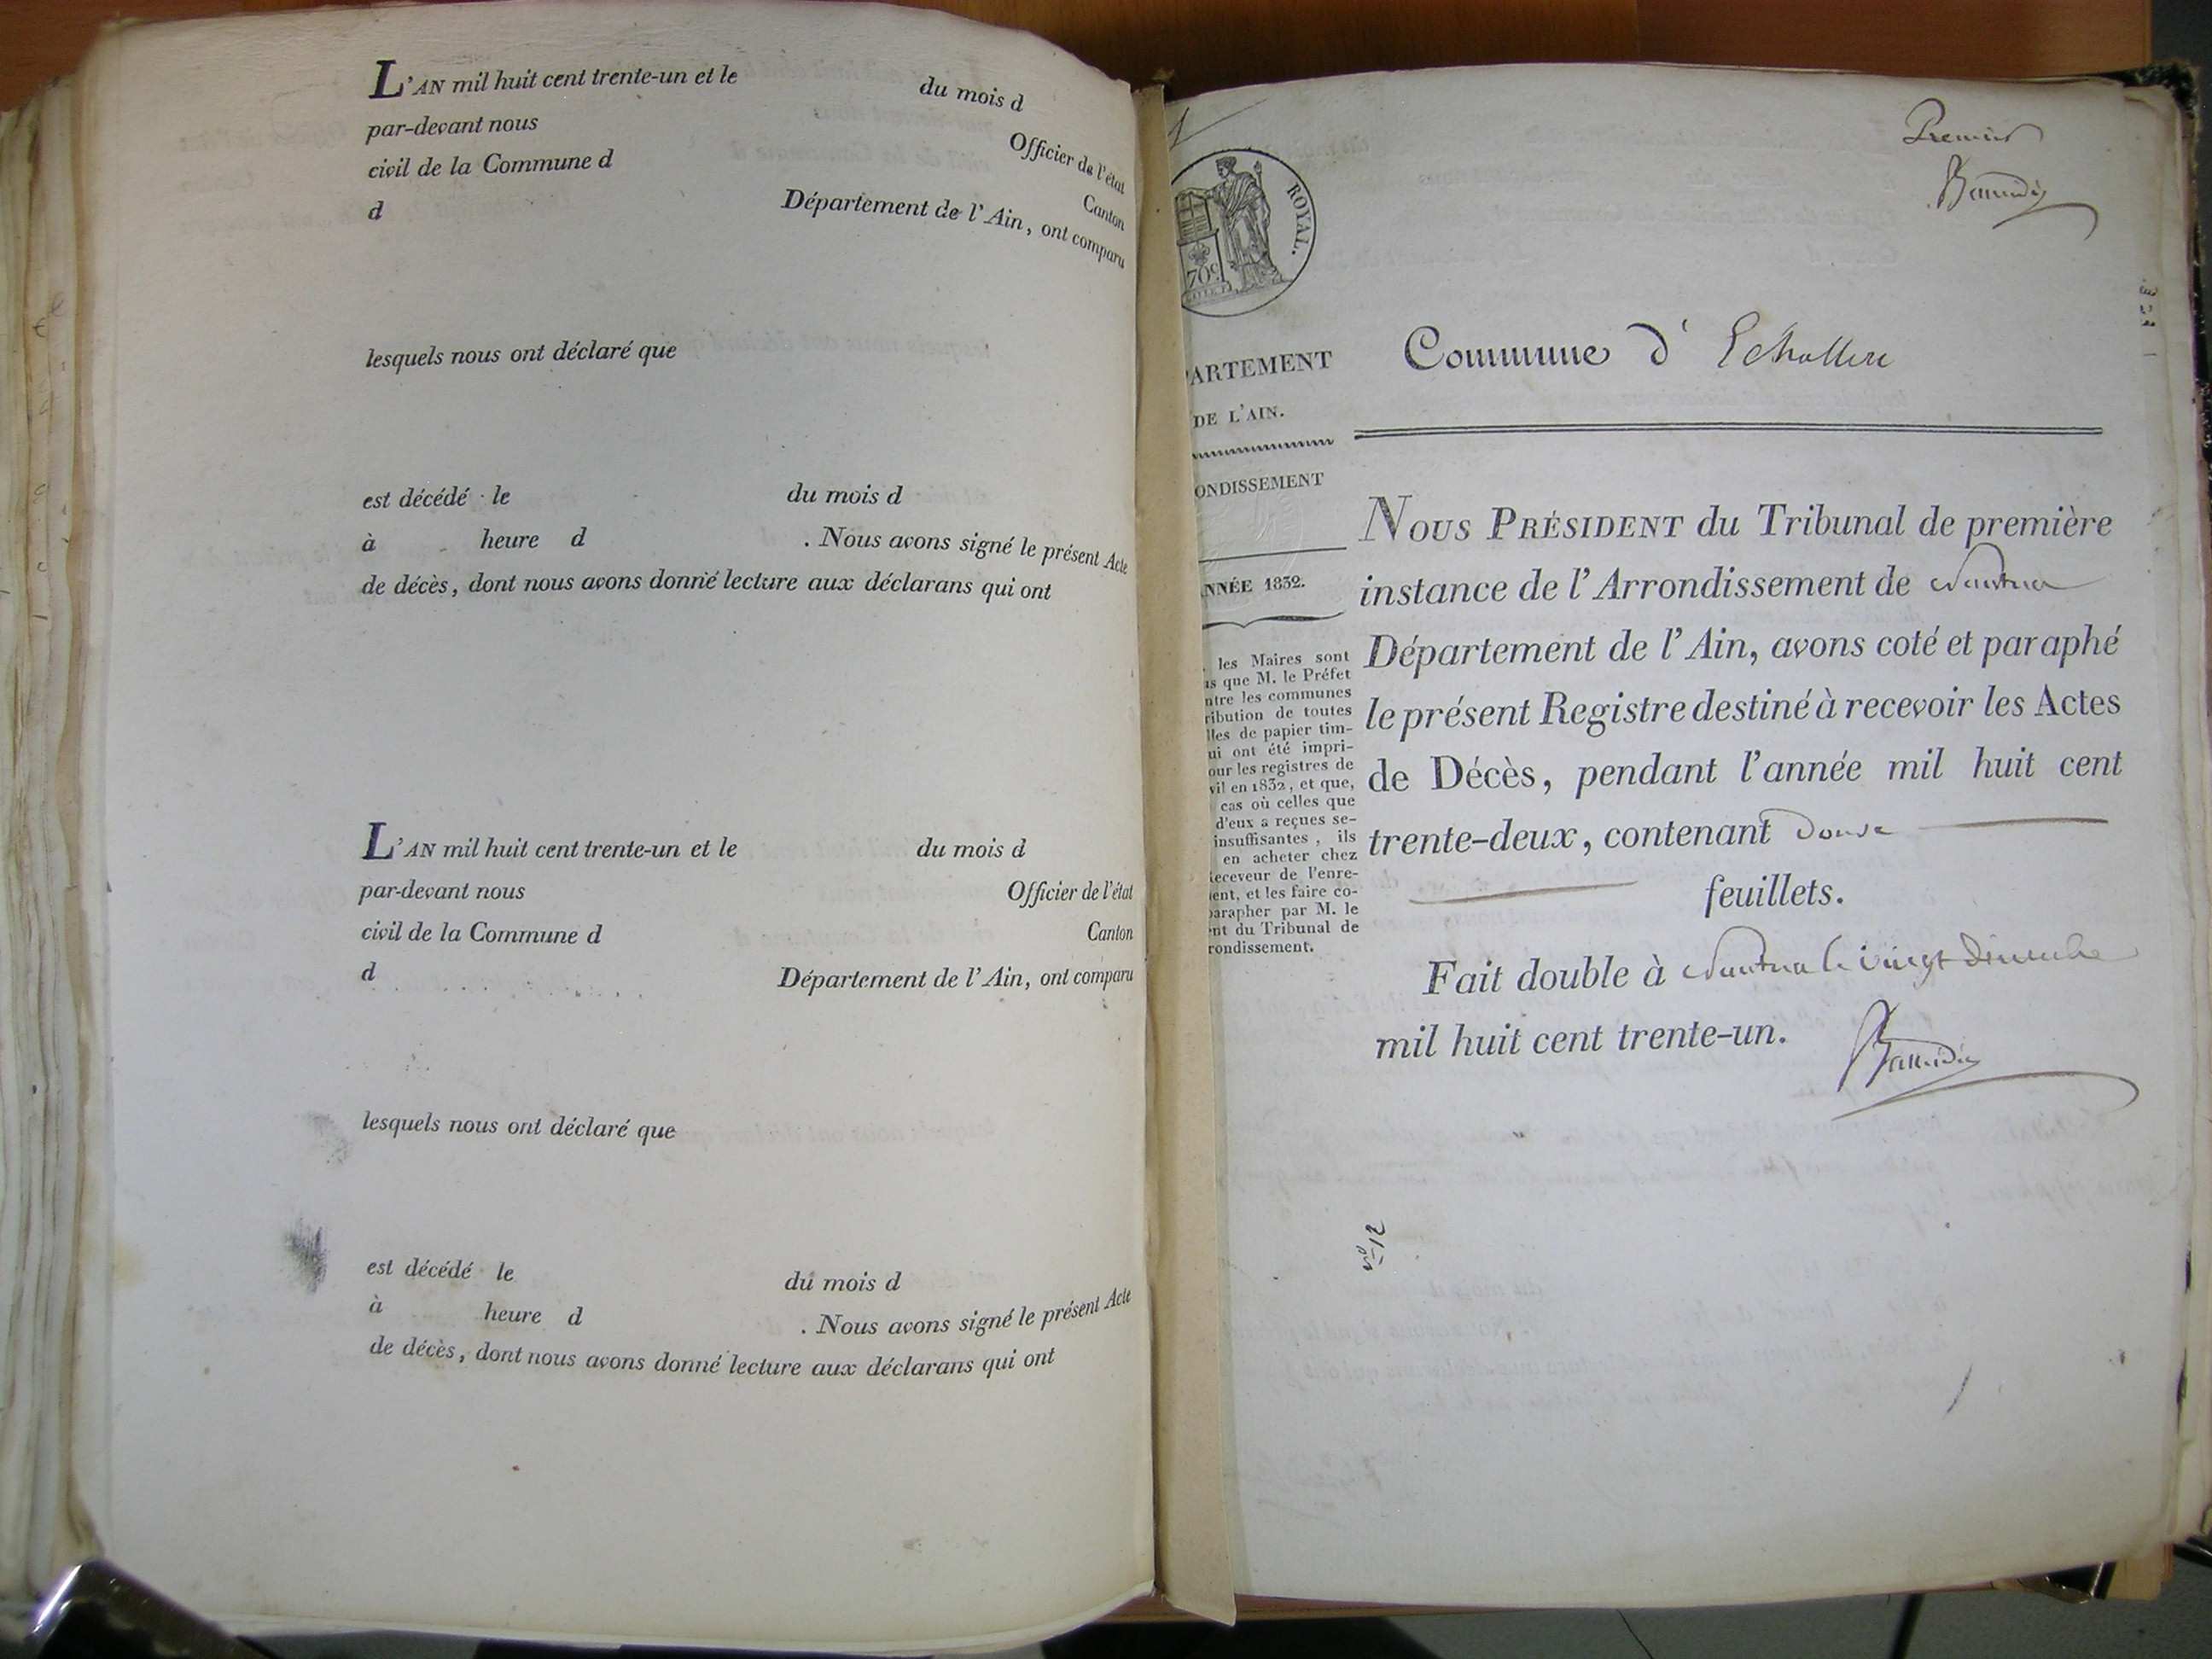 L'AN mil huit cent trente-un et le du mois d
par-devant nous Officier de l'état
civil de la Commune d Canton
d Département de l'Ain, ont comparu
lesquels nous ont déclaré que
est décédé le du mois d
à heure d . Nous avons signé le présent Acte
de décès, dont nous avons donné lecture aux déclarans qui ont
L'AN mil huit cent trente-un et le du mois d
par-devant nous Officier de l'état
civil de la Commune d Canton
d Département de l'Ain, ont comparu
lesquels nous ont déclaré que
est décédé le du mois d
à heure d . Nous avons signé le présent Acte
de décès, dont nous avons donné lecture aux déclarans qui ont
Premier
ROYAL.
70c.
PARTEMENT
DE L'AIN.
ONDISSEMENT
NNÉE 1832.
les Maires sont
us que M. le Préfet
ntre les communes
ribution de toutes
lles de papier tim-
ui ont été impri-
our les registres de
vil en 1832, et que,
cas où celles que
d'eux a reçues se-
insuffisantes, ils
en acheter chez
eceveur de l'enre-
ent, et les faire co-
parapher par M. le
nt du Tribunal de
rondissement.
Commune d' Echallon
NOUS PRÉSIDENT du Tribunal de première
instance de l'Arrondissement de Nantua
Département de l'Ain, avons coté et paraphé
le présent Registre destiné à recevoir les Actes
de Décès, pendant l'année mil huit cent
trente-deux, contenant douze
feuillets.
Fait double à Nantua le vingt Décembre
mil huit cent trente-un.
n° 12